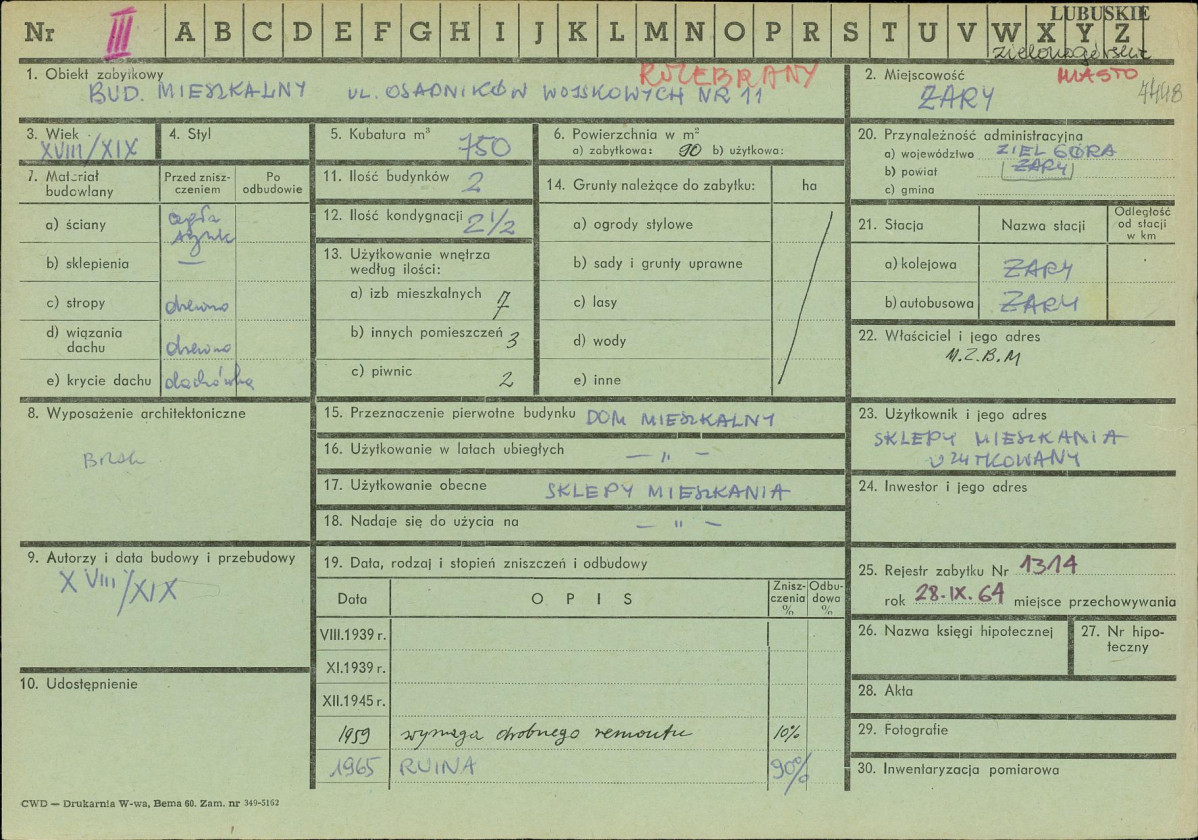 LUBUSKIE
Nr III A B C D E F G H I J K L M N O P R S T U V W X Y Z
zielonogórskie
1. Obiekt zabytkowy
ROZEBRANY
BUD. MIESZKALNY UL. OSADNIKÓW WOJSKOWYCH NR 11
2. Miejscowość
MIASTO
ŻARY
4498
3. Wiek
XVIII/XIX
4. Styl
5. Kubatura m³
750
6. Powierzchnia w m²
a) zabytkowa: 90 b) użytkowa:
20. Przynależność administracyjna
a) województwo ZIEL GÓRA
b) powiat ŻARY
c) gmina
7. Materiał budowlany
Przed zniszczeniem
Po odbudowie
a) ściany cegła
b) sklepienia —
c) stropy drewno
d) wiązania dachu drewno
e) krycie dachu dachówka
11. Ilość budynków 2
12. Ilość kondygnacji 2 1/2
13. Użytkowanie wnętrza
według ilości:
a) izb mieszkalnych 7
b) innych pomieszczeń 3
c) piwnic 2
14. Grunty należące do zabytku: ha
a) ogrody stylowe
b) sady i grunty uprawne
c) lasy
d) wody
e) inne
21. Stacja
Nazwa stacji
Odległość od stacji w km
a) kolejowa ŻARY
b) autobusowa ŻARY
22. Właściciel i jego adres
M.Z.B.M
8. Wyposażenie architektoniczne
Brak
15. Przeznaczenie pierwotne budynku DOM MIESZKALNY
16. Użytkowanie w latach ubiegłych — " —
17. Użytkowanie obecne SKLEPY MIESZKANIA
18. Nadaje się do użycia na — " —
23. Użytkownik i jego adres
SKLEPY MIESZKANIA
UŻYTKOWANY
24. Inwestor i jego adres
9. Autorzy i data budowy i przebudowy
XVIII/XIX
10. Udostępnienie
19. Data, rodzaj i stopień zniszczeń i odbudowy
Data OPIS Zniszczenia % Odbudowa %
VIII.1939 r.
XI.1939 r.
XII.1945 r.
1959 wymaga drobnego remontu 10%
1965 RUINA 90%
25. Rejestr zabytku Nr 1314
rok 28.IX.64 miejsce przechowywania
26. Nazwa księgi hipotecznej
27. Nr hipoteczny
28. Akta
29. Fotografie
30. Inwentaryzacja pomiarowa
CWD — Drukarnia W-wa, Bema 60. Zam. nr 349-5162